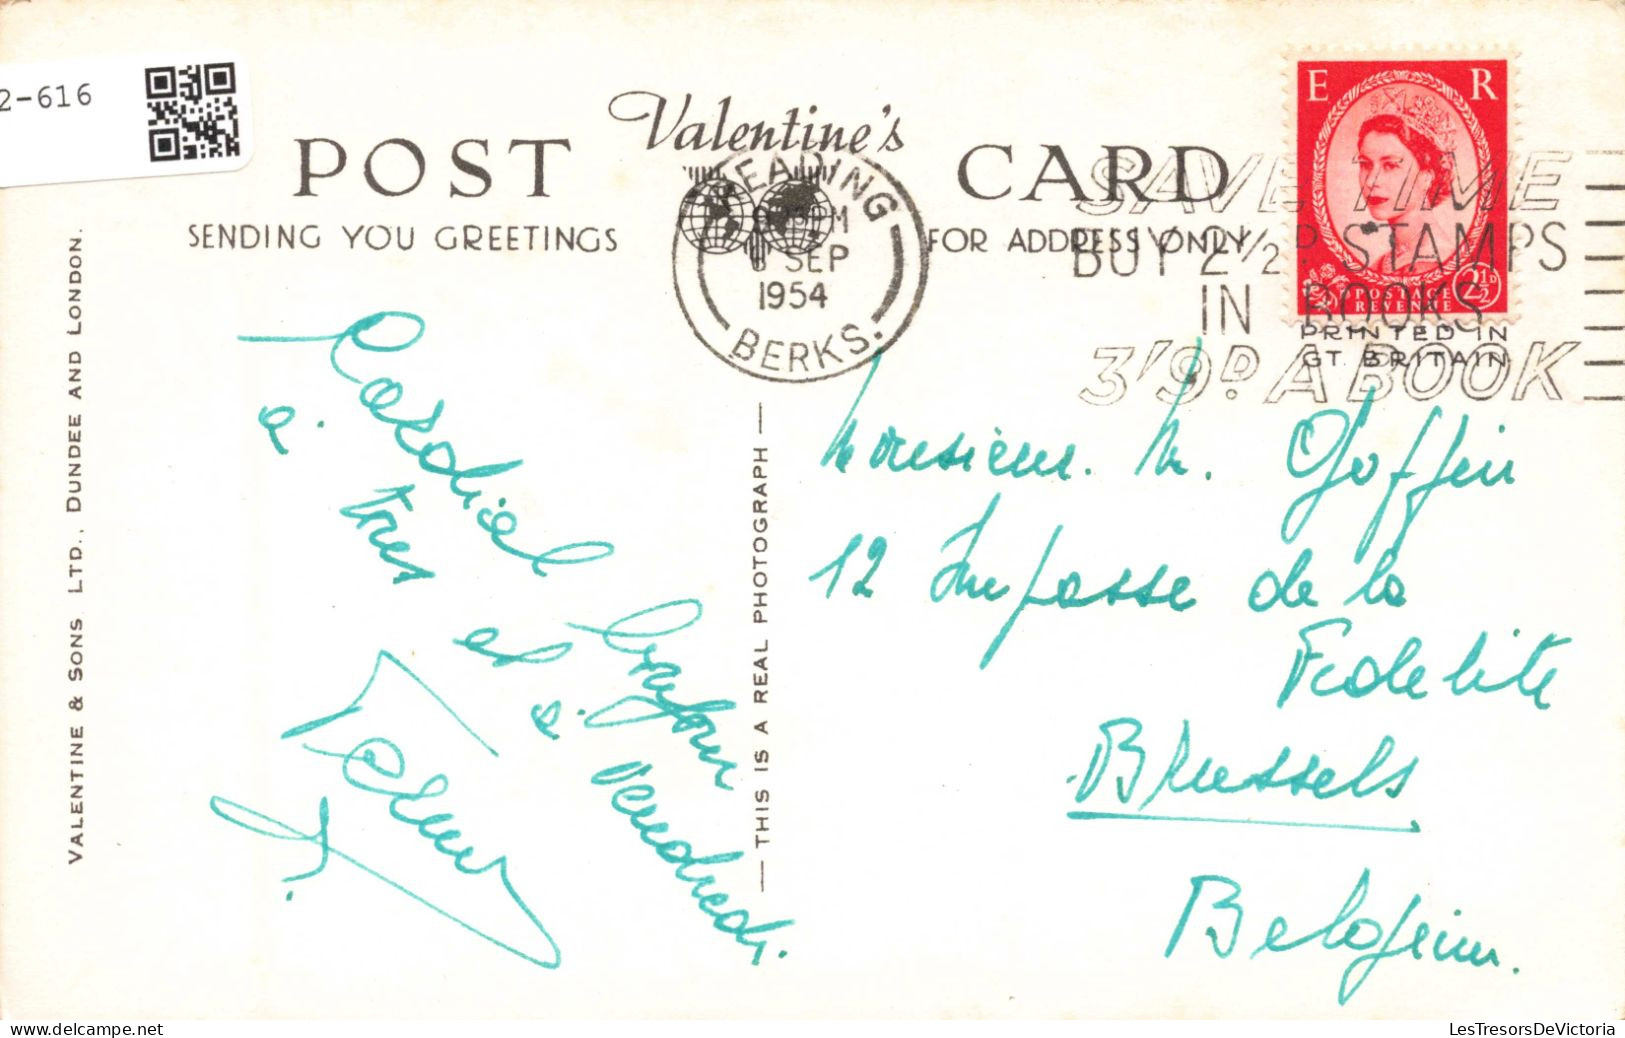 2-616
Valentine's
POST CARD
SENDING YOU GREETINGS
FOR ADDRESS ONLY
READING
SEP
1954
BERKS.
SAVE TIME
BUY 2½D. STAMPS
IN BOOKS
3'9D. A BOOK
E R
POSTAGE
REVENUE
2½D
PRINTED IN
GT. BRITAIN
VALENTINE & SONS LTD., DUNDEE AND LONDON.
— THIS IS A REAL PHOTOGRAPH —
Cordial bonjour
à tous et à vendredi.
Monsieur. M. Goffin
12 Impasse de la
Fidelité
Brussels
Belgium.
LesTresorsDeVictoria